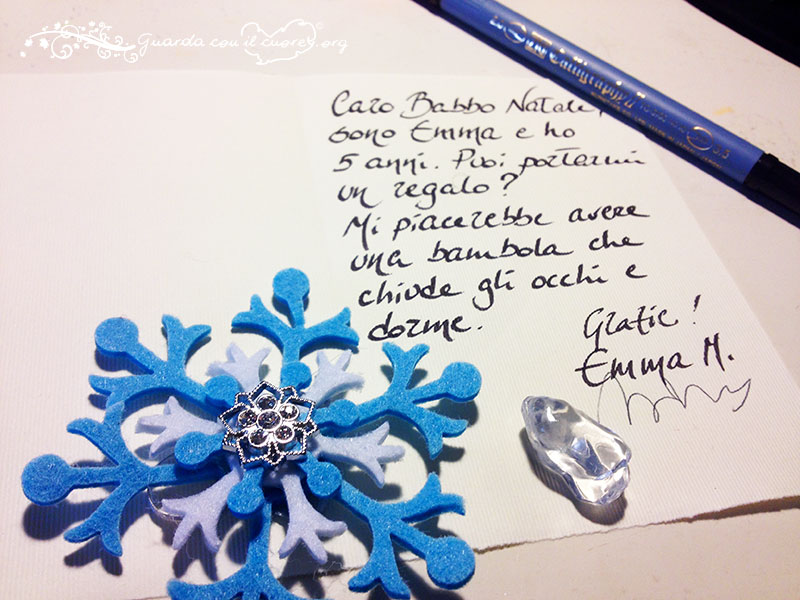 Guarda con il cuore.org
Caro Babbo Natale,
sono Emma e ho
5 anni. Puoi portarmi
un regalo?
Mi piacerebbe avere
una bambola che
chiude gli occhi e
dorme.
Grazie!
Emma M.
Calligraphy